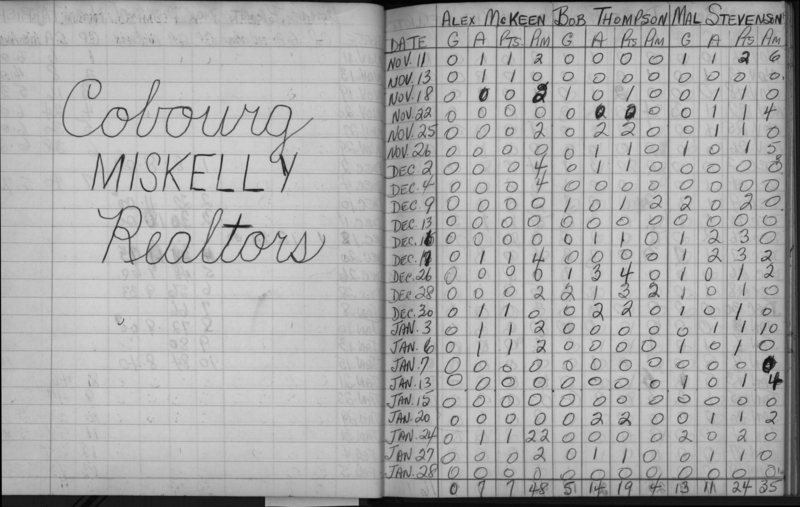 Cobourg
MISKELLY
Realtors
ALEX McKEEN BOB THOMPSON MAL STEVENSON
DATE G A PTS PIM G A PTS PIM G A PTS PIM
NOV. 11 0 1 1 2 0 0 0 0 1 1 2 6
NOV. 13 0 1 1 0 0 0 0 0 0 0 0 0
NOV. 18 0 0 0 2 1 0 1 0 0 1 1 0
NOV. 22 0 0 0 0 0 0 0 0 0 1 1 4
NOV. 25 0 0 0 2 0 2 2 0 0 1 1 0
NOV. 26 0 0 0 0 0 1 1 0 1 0 1 5
DEC. 2 0 0 0 4 0 1 1 0 0 0 0
DEC. 4 0 0 0 4 0 0 0 0 0 0 0 0
DEC. 9 0 0 0 0 1 0 1 2 2 0 2 0
DEC. 13 0 0 0 0 0 0 0 0 0 0 0 0
DEC. 0 0 0 0 0 1 1 0 1 2 3 0
DEC. 0 1 1 4 0 0 0 0 1 2 3 2
DEC. 26 0 0 0 0 1 3 4 0 1 0 1 2
DEC. 28 0 0 0 2 2 1 3 2 1 0 1 0
DEC. 30 0 1 1 0 0 2 2 0 1 0 1 0
JAN. 3 0 1 1 2 0 0 0 0 0 1 1 10
JAN. 6 0 1 1 2 0 0 0 0 1 0 1 0
JAN. 7 0 0 0 0 0 0 0 0 0 0 0 0
JAN. 13 0 0 0 0 0 0 0 0 1 0 1 4
JAN. 15 0 0 0 0 0 0 0 0 0 0 0 0
JAN. 20 0 0 0 0 0 2 2 0 0 1 1 2
JAN. 24 0 1 1 22 0 0 0 0 2 0 2 0
JAN. 27 0 0 0 2 0 1 1 0 0 1 1 0
JAN. 28 0 0 0 0 0 0 0 0 0 0 0 0
0 7 7 48 5 14 19 4 13 11 24 35